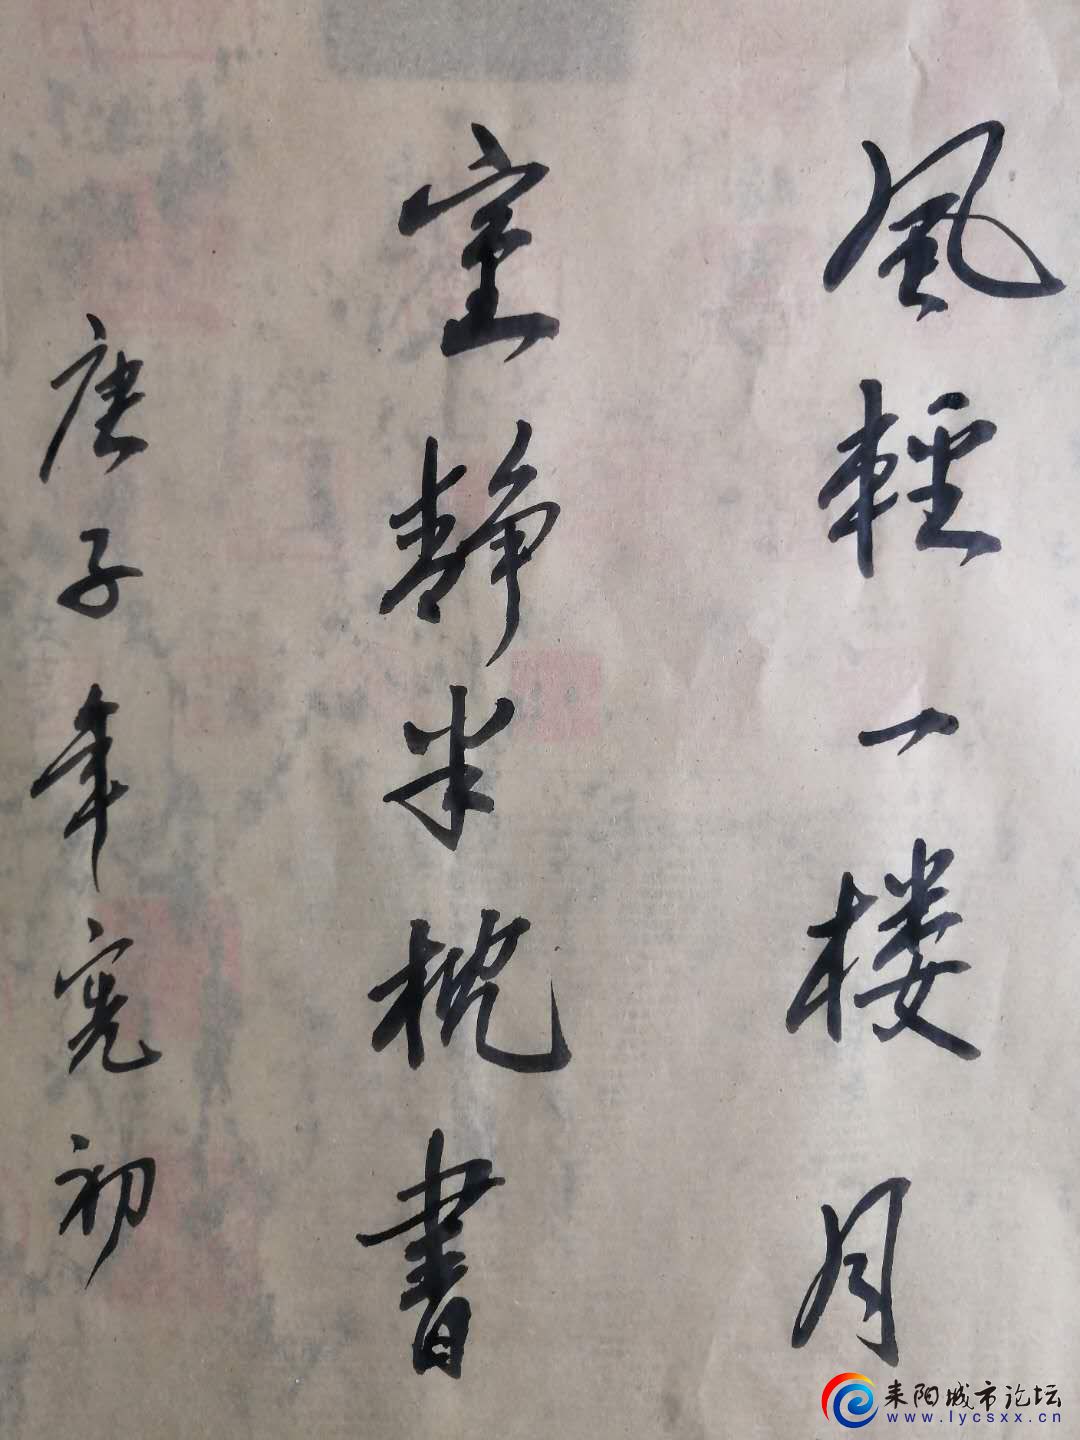 風輕一楼月
室静半枕書
庚子年寛初
耒阳城市论坛
www.lycsxx.cn